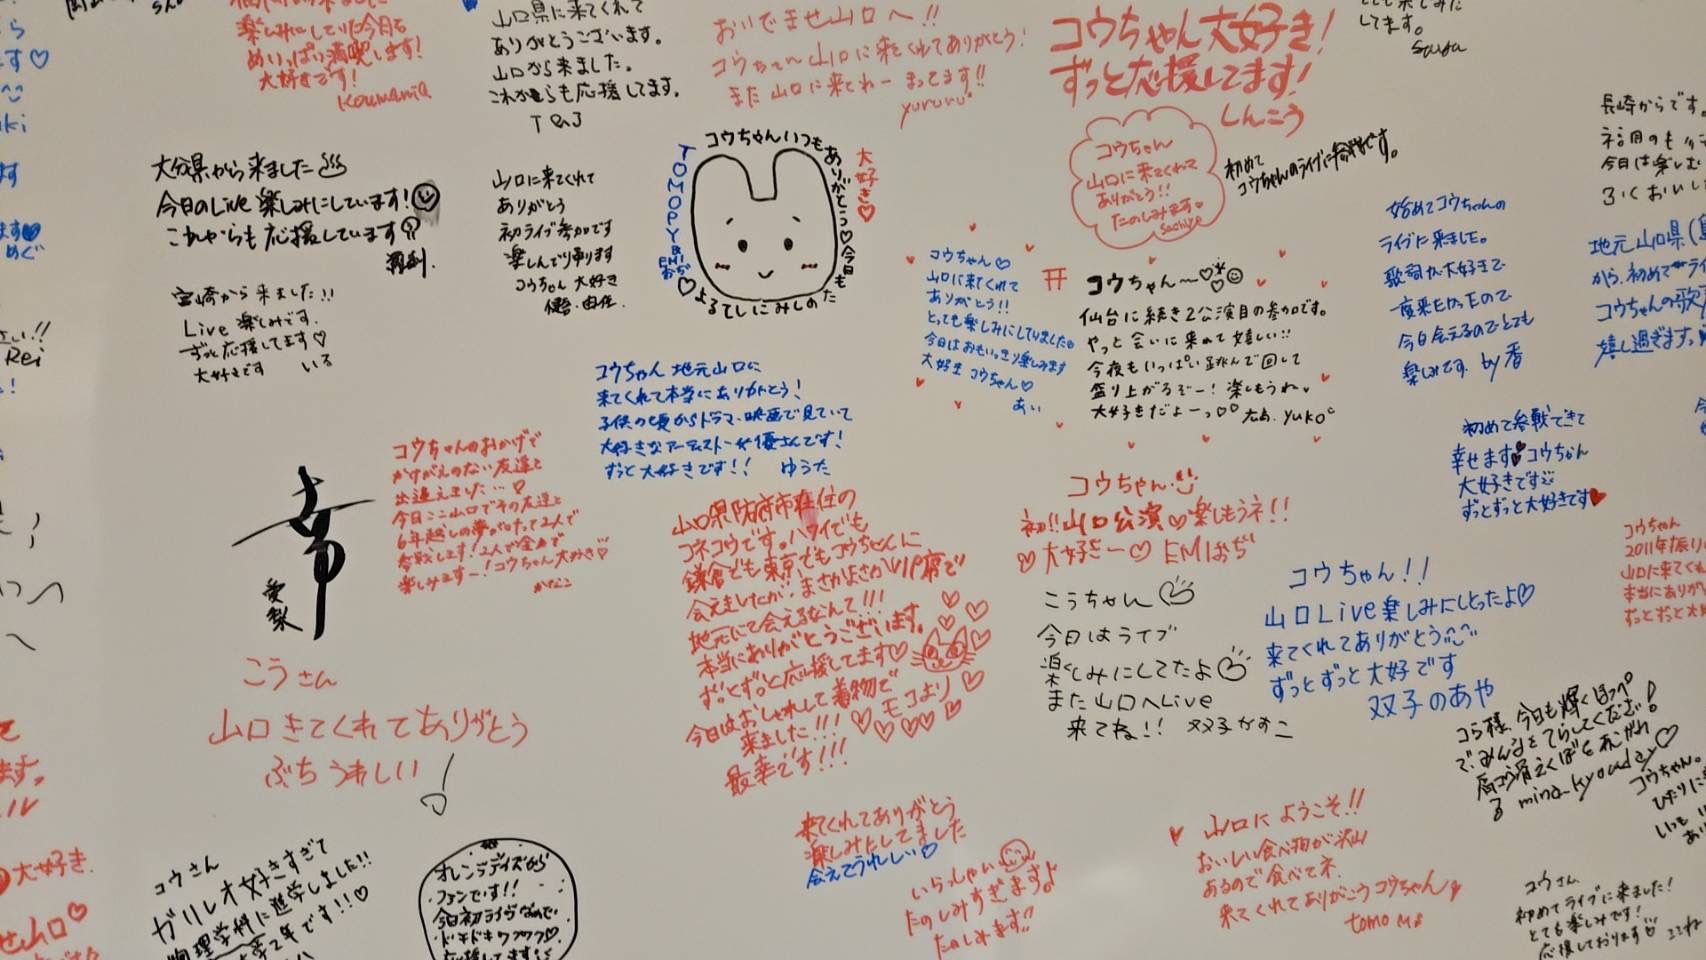 楽しみにしていた今日を
めいっぱい満喫します!
大好きです!
Koumania
山口県に来てくれて
ありがとうございます。
山口から来ました。
これからも応援してます。
おいでませ山口へ!!
コウちゃ〜ん山口に来てくれてありがとう!
また山口に来てねー まってます!!
yururu
コウちゃん大好き!
ずっと応援してます!
しんこう
してます。
コウちゃん
山口に来てくれて
ありがとう!!
たのしみます♡
sachiye
初めて
コウちゃんのライブに参戦です。
長崎からです。
大分県から来ました♨
今日のLive楽しみにしています!
これからも応援しています
宮崎から来ました!!
Live 楽しみです。
ずっと応援してます♡
大好きです いる
山口に来てくれて
ありがとう
初ライブ参加です
楽しんで帰ります
コウちゃん 大好き
コウちゃんいつもありがとう♡今日も
たのしみにしてるよ♡
大好き♡
TOMOPY&EMIおぢ
コウちゃん♡
山口に来てくれて
ありがとう!!
とっても楽しみにしてました
今日はおもいっきり楽しみます
大好き コウちゃん♡
あい
コウちゃん〜♡
仙台に続き2公演目の参加です。
やっと会いに来れて嬉しい!!
今夜もいっぱい跳んで回して
盛り上がるぞー! 楽しもうね♥
大好きだよーっ♡♡ 広島 yuko
始めてコウちゃんの
ライブに来ました。
歌詞が大好きで
一度来たかったので
今日会えるのでとても
楽しみです by香
地元山口県
から、初めてライ
コウちゃんの歌
嬉し過ぎますっ
コウちゃん 地元山口に
来てくれて本当にありがとう!
子供の頃からドラマ・映画で見ていて
大好きなアーティスト・女優さんです!
ずっと大好きです!! ゆうた
初めて参戦できて
幸せます コウちゃん
大好きです
ずっとずっと大好きです♥
コウちゃんのおかげで
かけがえのない友達と
出逢えました…♡
今日ここ山口でその友達と
6年越しの夢が叶って2人で
参戦します!2人で全力で
楽しみますー!コウちゃん大好き♡
かなこ
幸
愛梨
山口県防府市在住の
コネコウです。ハワイでも
鎌倉でも東京でもコウちゃんに
会えましたが、まさかまさかVIP席で
地元にて会えるなんて!!!
本当にありがとうございます。
ずーっとずーっと応援してます♡
今日はおしゃれして着物で
来ました!!! ♡モコより♡
最幸です!!!
コウちゃん
初!!山口公演♡楽しもうネ!!
♡大好き〜♡ EMIおぢ
こうちゃん
今日はライブ
楽しみにしてたよ
また山口へLive
来てね!! 双子かずこ
コウちゃん!!
山口Live楽しみにしとったよ♡
来てくれてありがとう
ずっとずっと大好です
双子のあや
コウちゃん
2011年振り
山口に来てくれ
本当にありが
ずっとずっと大好
こうさん
山口きてくれてありがとう
ぶちうれしい
コウ様、今日も輝くほっぺ
でみんなをてらしてください!
mina_kyouda
コウちゃん。
来てくれてありがとう
楽しみにしてました
会えてうれしい♡
いらっしゃい
たのしみすぎます♪
たのしみます!!
♥ 山口にようこそ!!
おいしい食べ物が沢山
あるので食べてネ
来てくれてありがとうコウちゃん♥
コウさん
ガリレオ好きすぎて
物理学科に進学しました!!
大学2年です!!♡
オレンジデイズから
ファンです!!
今日初ライブなので
ドキドキワクワク♡
応援してます
コウさん
初めてライブに来ました!
とても楽しみです!
応援しております♡
大好き.